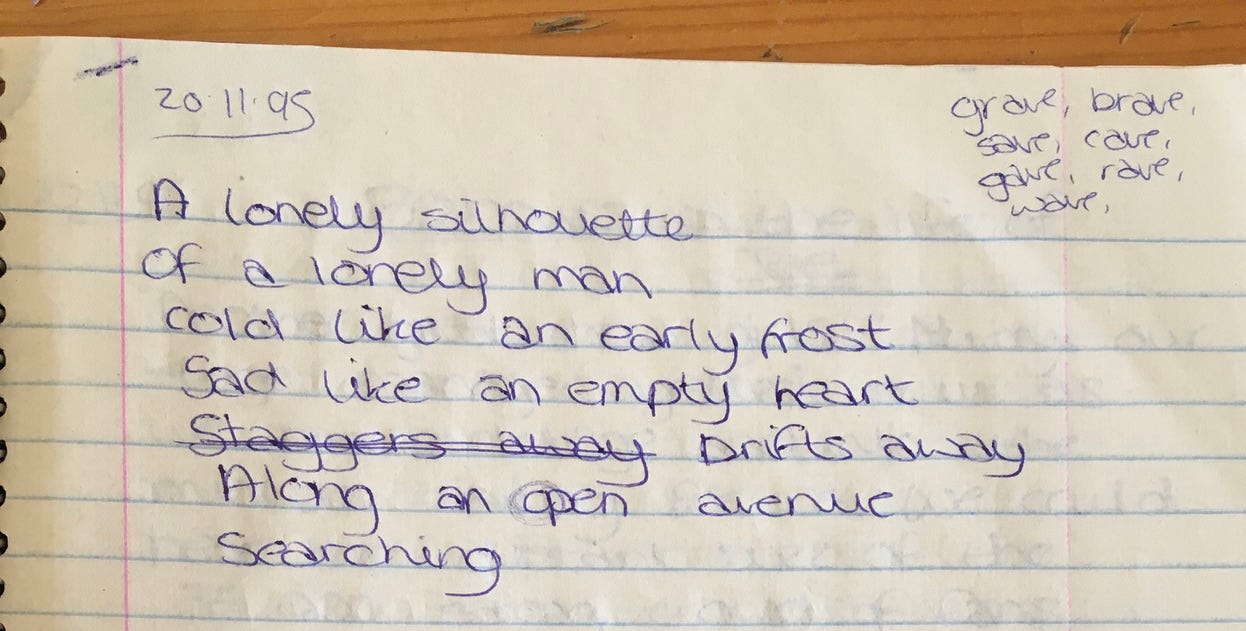 20.11.95
grave, brave,
save, cave,
gave, rave,
wave,
A lonely silhouette
Of a lonely man
cold like an early frost
Sad like an empty heart
Staggers away Drifts away
Along an open avenue
Searching